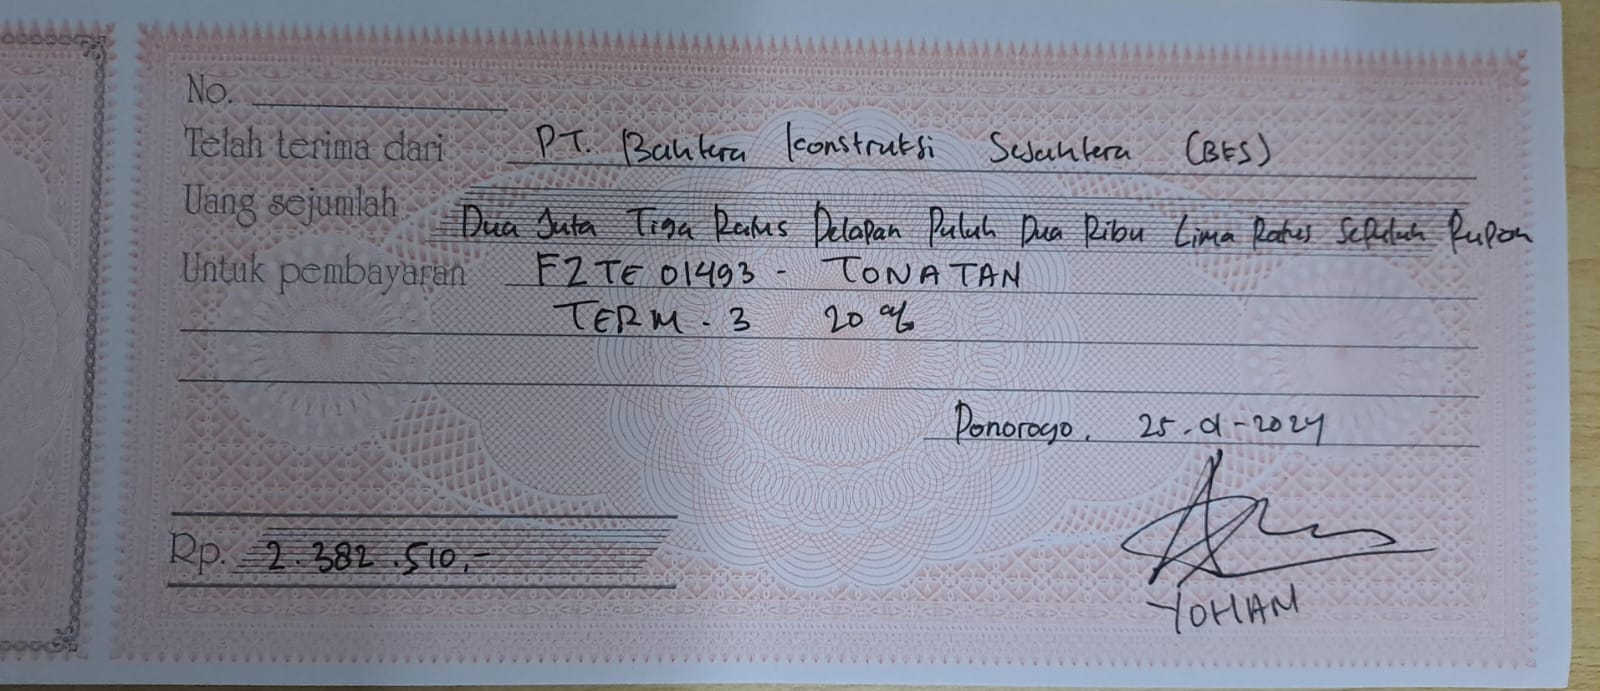 No.
Telah terima dari PT. Bahtera Konstruksi Sejahtera (BES)
Uang sejumlah Dua Juta Tiga Ratus Delapan Puluh Dua Ribu Lima Ratus Sepuluh Rupiah
Untuk pembayaran F2TE01493 - TONATAN
TERM - 3 20%
Ponorogo, 25-01-2024
Rp. 2.382.510,-
YOHAN